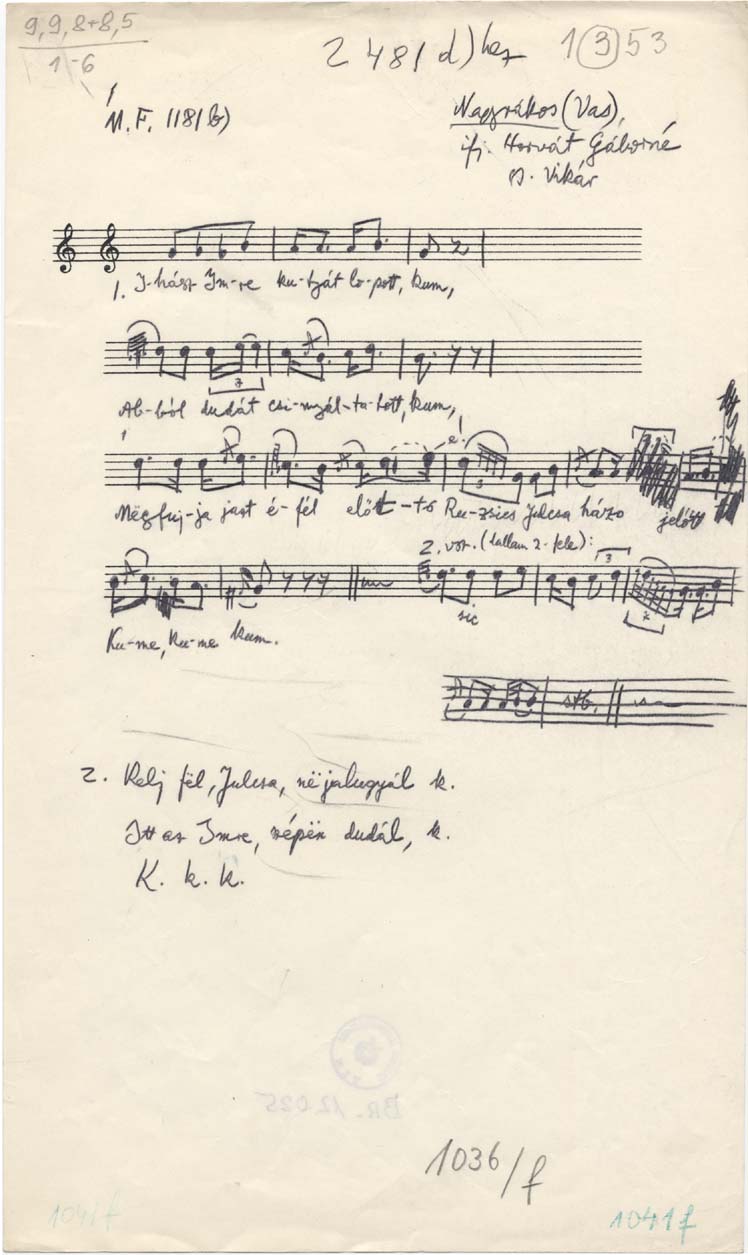 9, 9, 8+8, 5
1-6
2481 d) hez
1 3 53
M. F. 1181 b)
Nagyrákos (Vas),
ifj. Horvát Gáborné
Vikár
1. I-hász Im-re ku-tyát lo-pott, kum,
7
Ab-ból dudát csi-nyál-ta-tott, kum,
Mëgfuj-ja jast é-fél előtt-tő Ru-zsics Julcsa házo jelőtt
3
e!
2. vsz. (dallam 2. fele):
3
Ku-me, ku-me kum.
sic
7
stb.
2. Kelj fël, Julcsa, në jalugyál k.
Itt az Imre, szépën dudál, k.
K. k. k.
BR. 12.025
1036/f
1041f
1041f